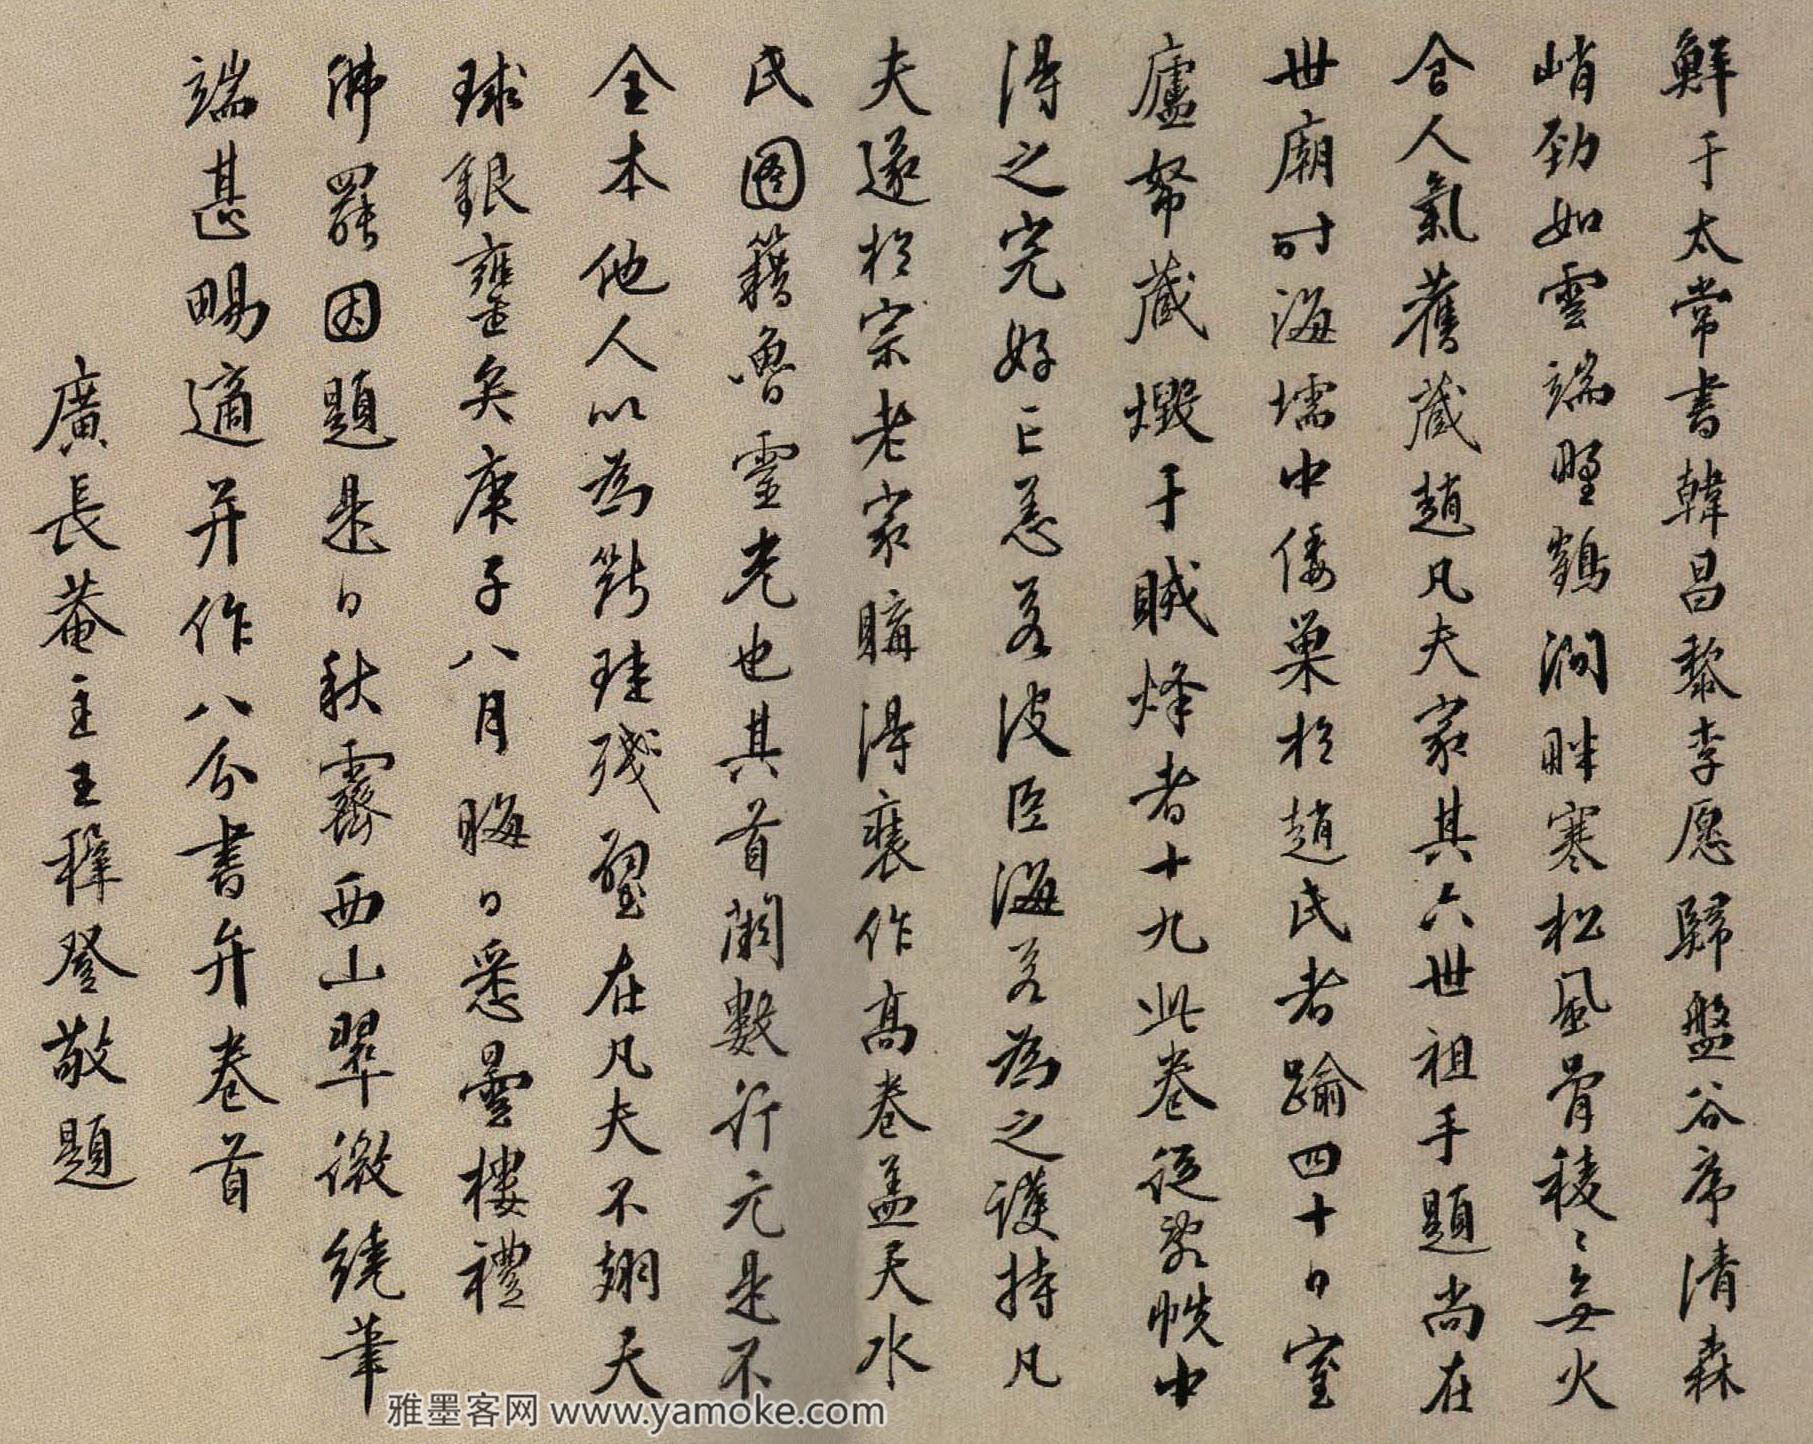 鮮于太常書韓昌黎李愿歸盤谷序清森
峭勁如雲端野鶴澗畔寒松風骨稜〻無火
食人氣舊藏趙凡夫家其六世祖手題尚在
世廟時海壖中倭巢於趙氏者踰四十日室
廬帑藏燬于賊烽者十九此卷從敗帙中
得之完好亡恙若波臣海若為之護持凡
夫遂於宗老家購得裝作高卷盖天水
氏圖籍魯靈光也其首闕數行元是不
全本他人以為斷珪殘璧在凡夫不翅天
球銀甕矣庚子八月晦日悉曇樓禮
佛罷因題是日秋霽西山翠微繞筆
端甚暢適并作八分書弁卷首
廣長菴主王穉登敬題
雅墨客网 www.yamoke.com